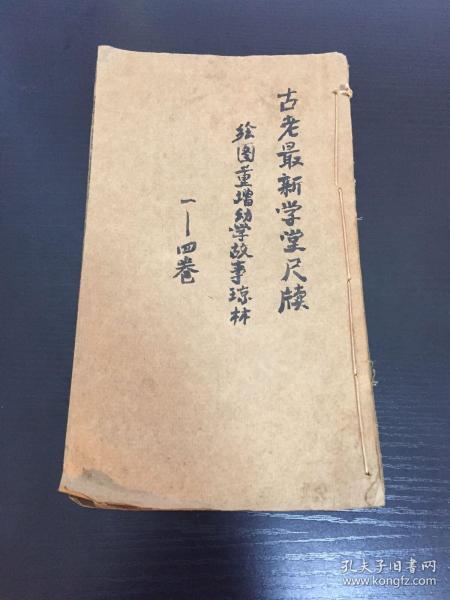 古老最新学堂尺牍
绘图重增幼学故事琼林
一—四卷
孔夫子旧书网
www.kongfz.com